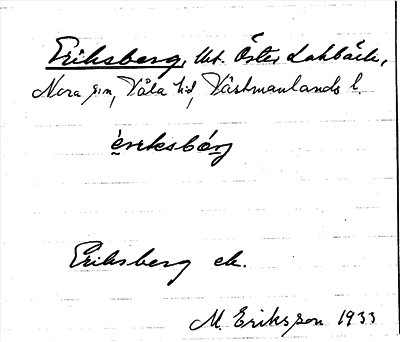 Eriksberg, Ut. Öster Lakbäck,
Nora sn, Våla hd, Västmanlands l.
ėriksbárj
Eriksberg ek.
M. Eriksson 1933